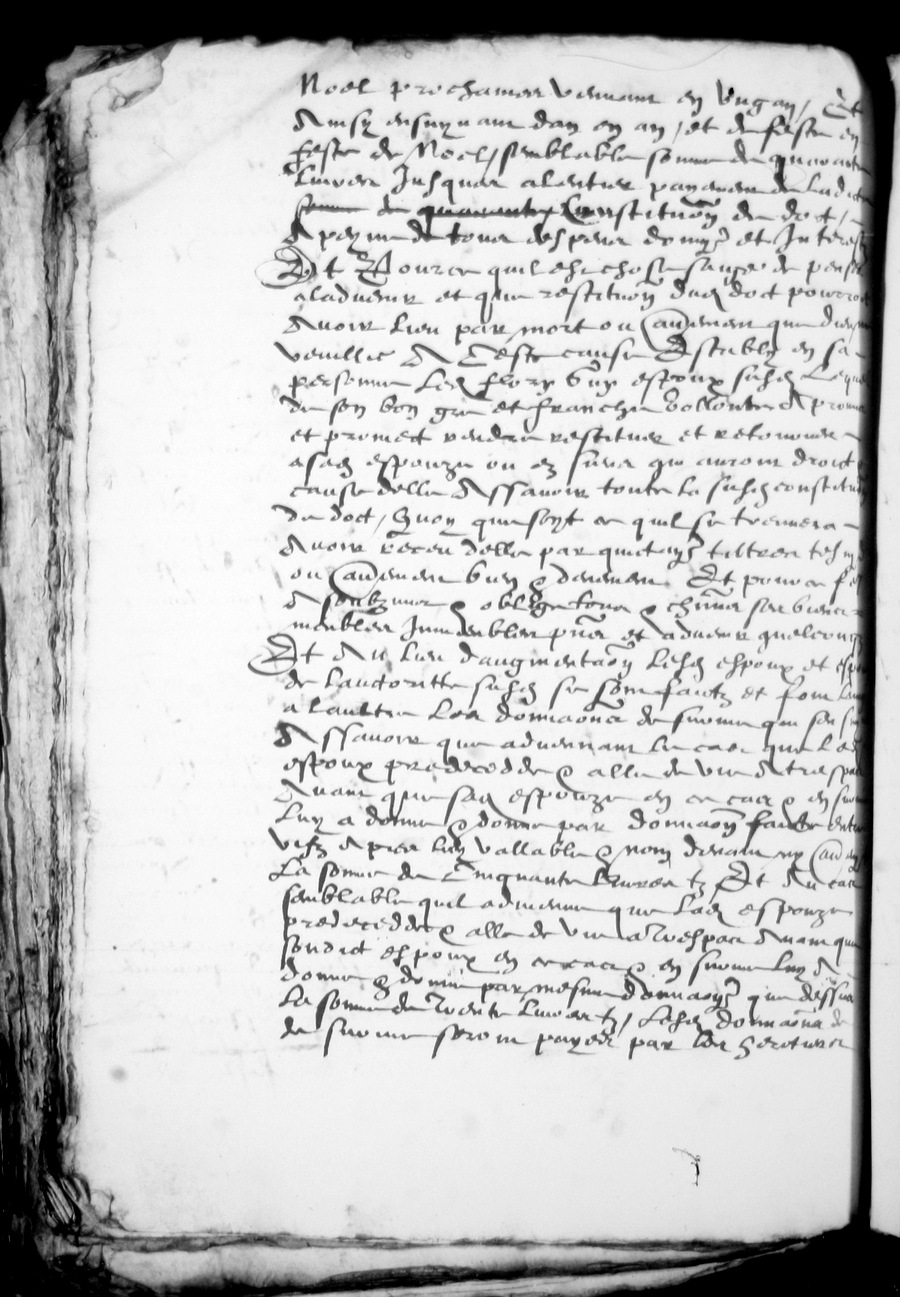 Noel prochamen venant en ung an / Et
Ainsy ensuyvant dan en an / et de feste en
feste de Noel / semblable somme de quarante
livres Jusques alentier payement de ladicte
somme de quarante Constituon de dot /
A peyne de tous despens domys et Interes
Et Pource quil est chose sauge de penser
aladvenir et que restituon dud dot pourroit
Avoir lieu par mort ou aultrement que dieu ne
veuille A Ceste cause Estably en sa
personne Led flory espoux susd Lequel
de son bon gre et franche vollonte A promis
et promect rendre restituer et retourner
a sad espouze ou ez siens qui auront droict
cause delle Assavoir toute la susd constituon
de dot / Quoy que soyt ce quil se treuvera
Avoir receu delle par quictances tiltres tesmoings
ou aultrement et deuement Et pour ce f
A soubzmis et oblige tous et chuns ses biens
meubles Immeubles pns et advenir quelconques
Et Au lieu daugmentaon lesd espoux et espouze
de lauctorite susd se sont faictz et font lung
a laultre les donnaons de survie que sen suyvent
Assavoir que advenant le cas que led
espoux predecedde et alle de vie A trespas
Avant que sad espouze en ce cas et en survie
Luy a donne et donne par donnaon faicte entre
vifz A pur bien vallable et non devant
La somme de Cinquante livres tz Et Au cas
semblable quil advienne que lad espouze
predecedde et alle de vie a trespas Avant que
sondict espoux en ce cas et en survie luy A
donne et donne par mesme donnaon que dessus
La somme de trente livres tz / Lesd donnaons de
de survie seront payees par les heretiers